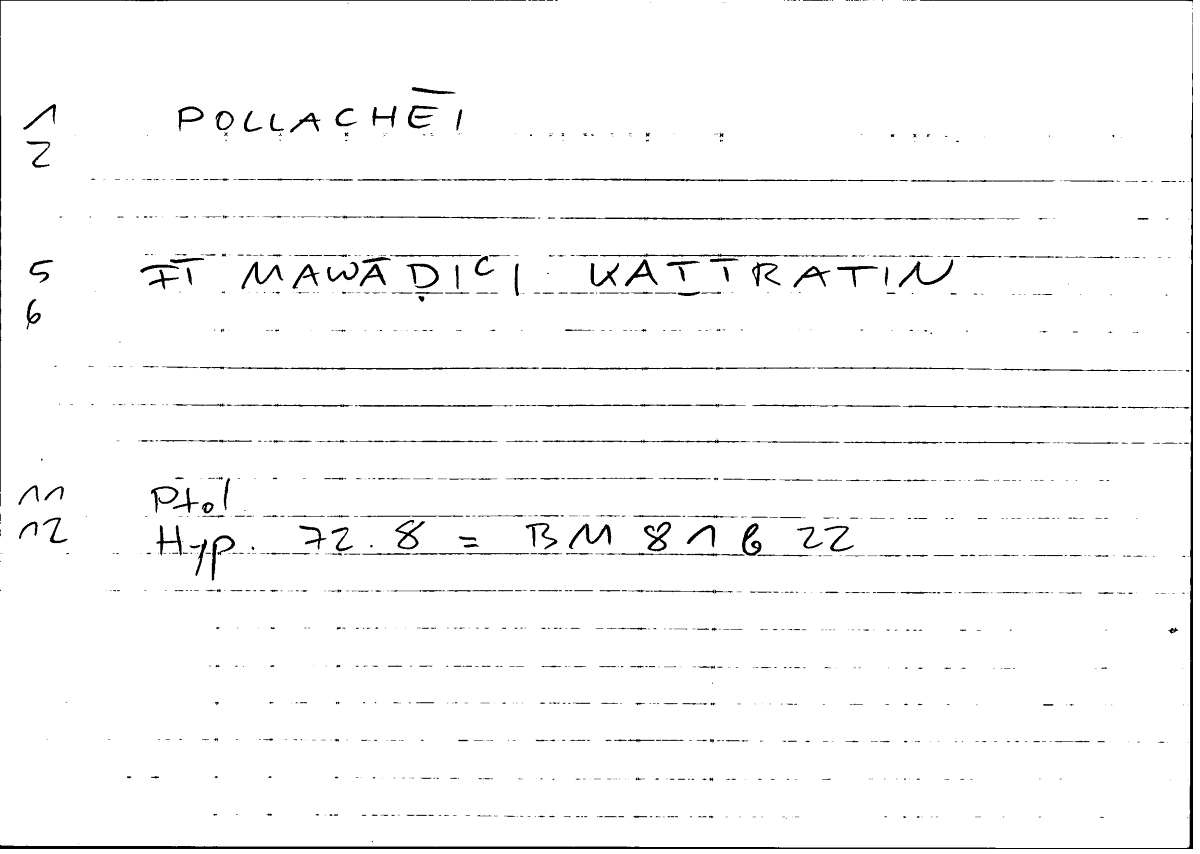 1 POLLACHĒI
2
5 FĪ MAWĀḌIC I KAṮṮRATIN
6
11 Ptol
12 Hyp. 72.8 = BM 81 b 22